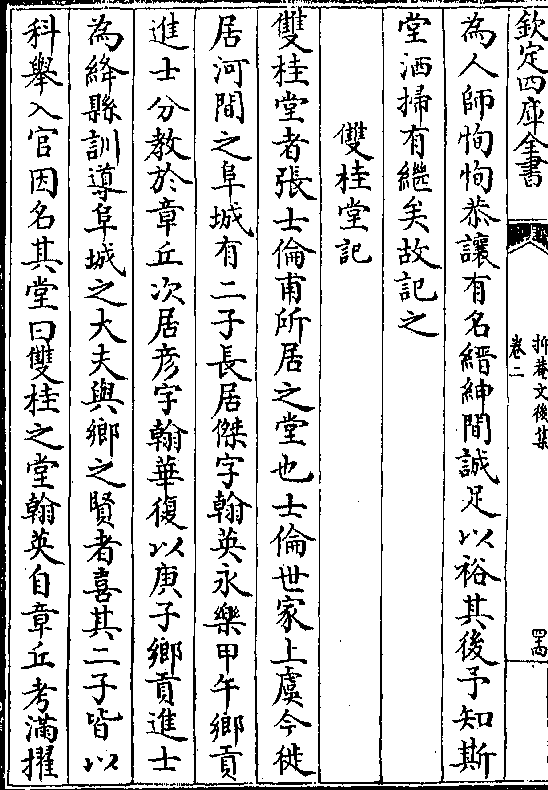 欽定四庫全書
抑菴文後集
卷二
為人師恂恂恭讓有名縉紳間誠足以裕其後予知斯
堂洒掃有繼矣故記之
雙桂堂記
雙桂堂者張士倫甫所居之堂也士倫世家上虞今徙
居河間之阜城有二子長居傑字翰英永樂甲午鄉貢
進士分教於章丘次居彦字翰華復以庚子鄉貢進士
為絳縣訓導阜城之大夫與鄉之賢者喜其二子皆以
科舉入官因名其堂曰雙桂之堂翰英自章丘考滿擢